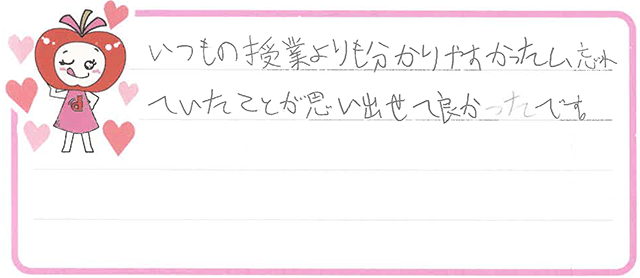 いつもの授業よりも分かりやすかったし、忘れ
ていたことが思い出せて良かったです。
d